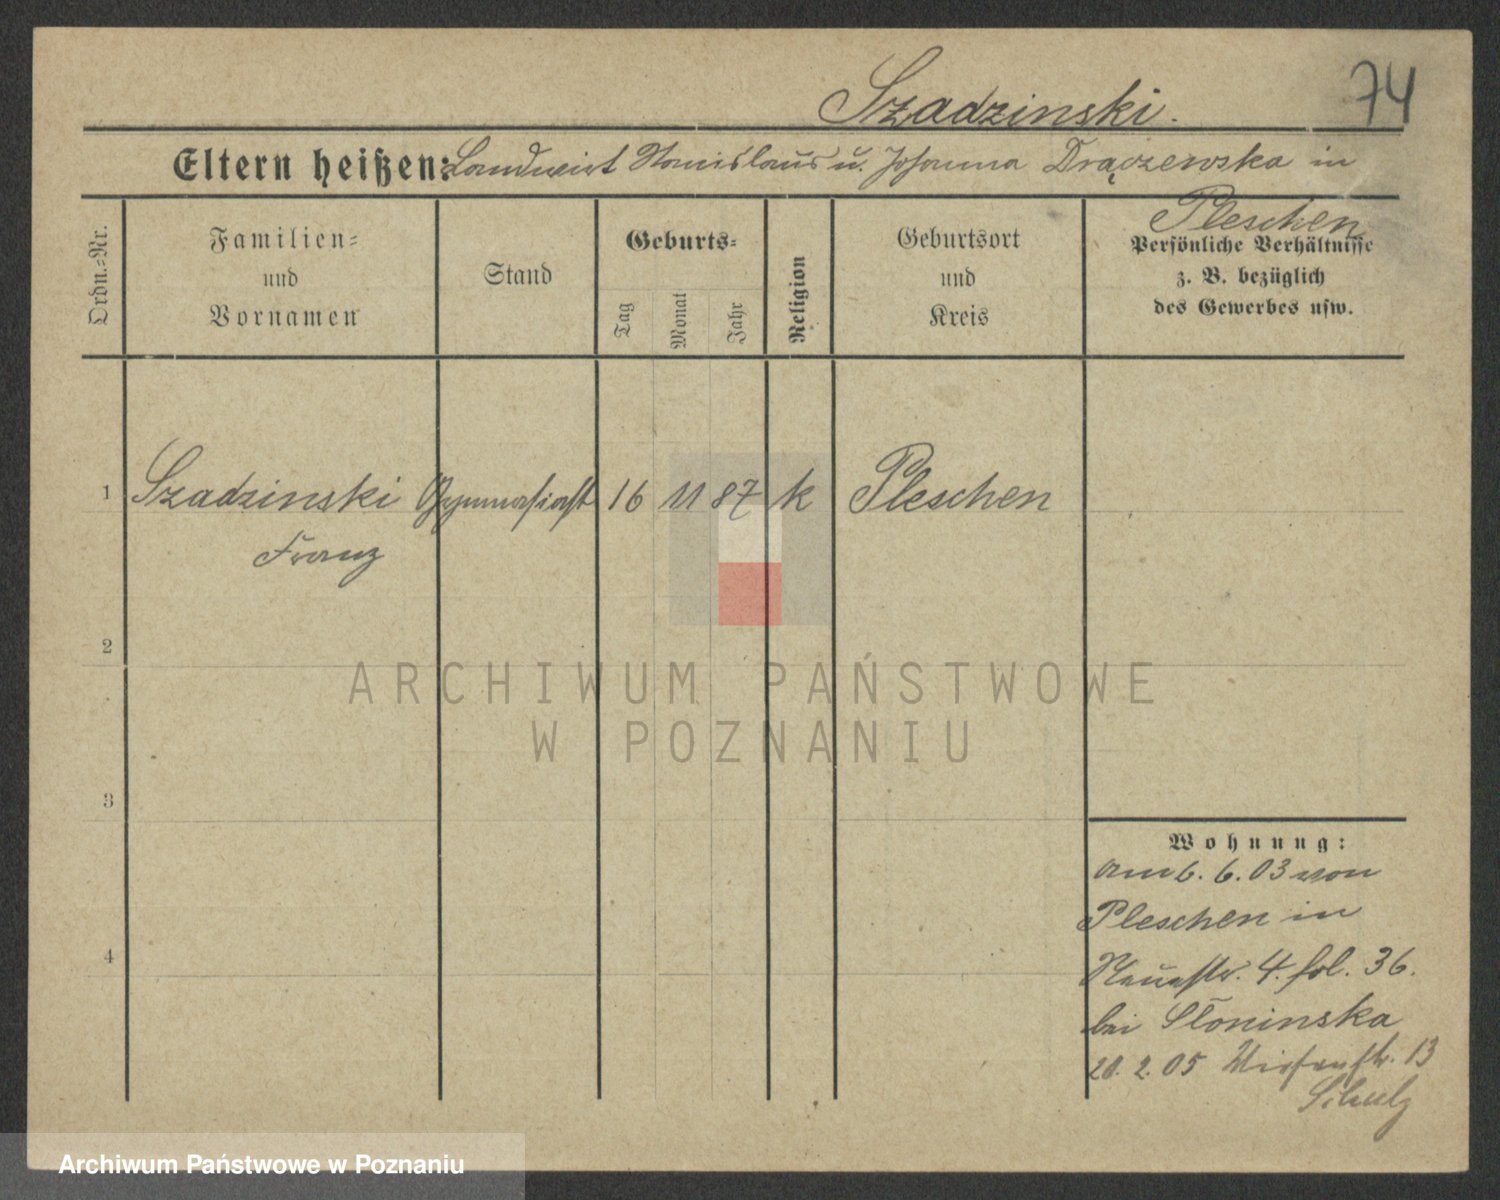 Szadzinski.
74
Eltern heißen: Landwirt Stanislaus u. Johanna Drączewska in
Pleschen
Ordn.-Nr.
Familien-
und
Vornamen
Stand
Geburts-
Tag
Monat
Jahr
Religion
Geburtsort
und
Kreis
Persönliche Verhältnisse
z. B. bezüglich
des Gewerbes usw.
1 Szadzinski Gymnasiast 16 11 87 k Pleschen
Franz
2
ARCHIWUM PAŃSTWOWE
W POZNANIU
3
Wohnung:
am 6. 6. 03 von
Pleschen in
4
Neuestr. 4. fol. 36.
bei Słoninska
20. 2. 05 Wiesenstr. 13
Schulz
Archiwum Państwowe w Poznaniu